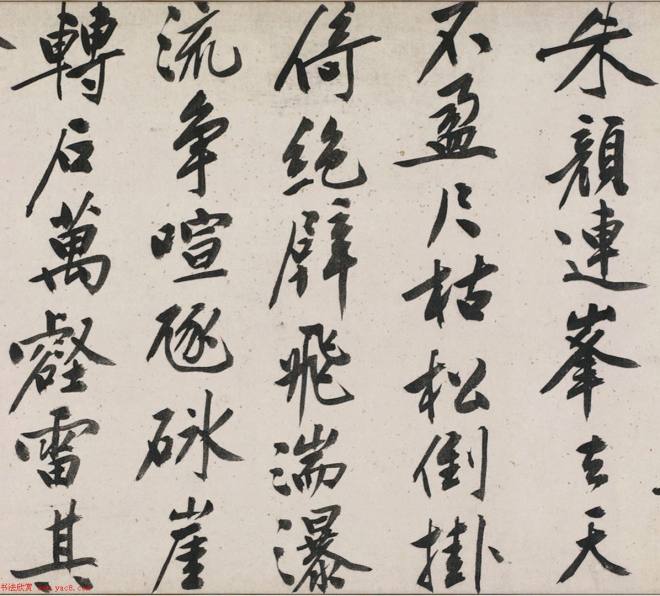 朱顔連峯去天
不盈尺枯松倒掛
倚絶壁飛湍瀑
流争喧豗砯崖
轉石萬壑雷其
书法欣赏 www.yac8.com